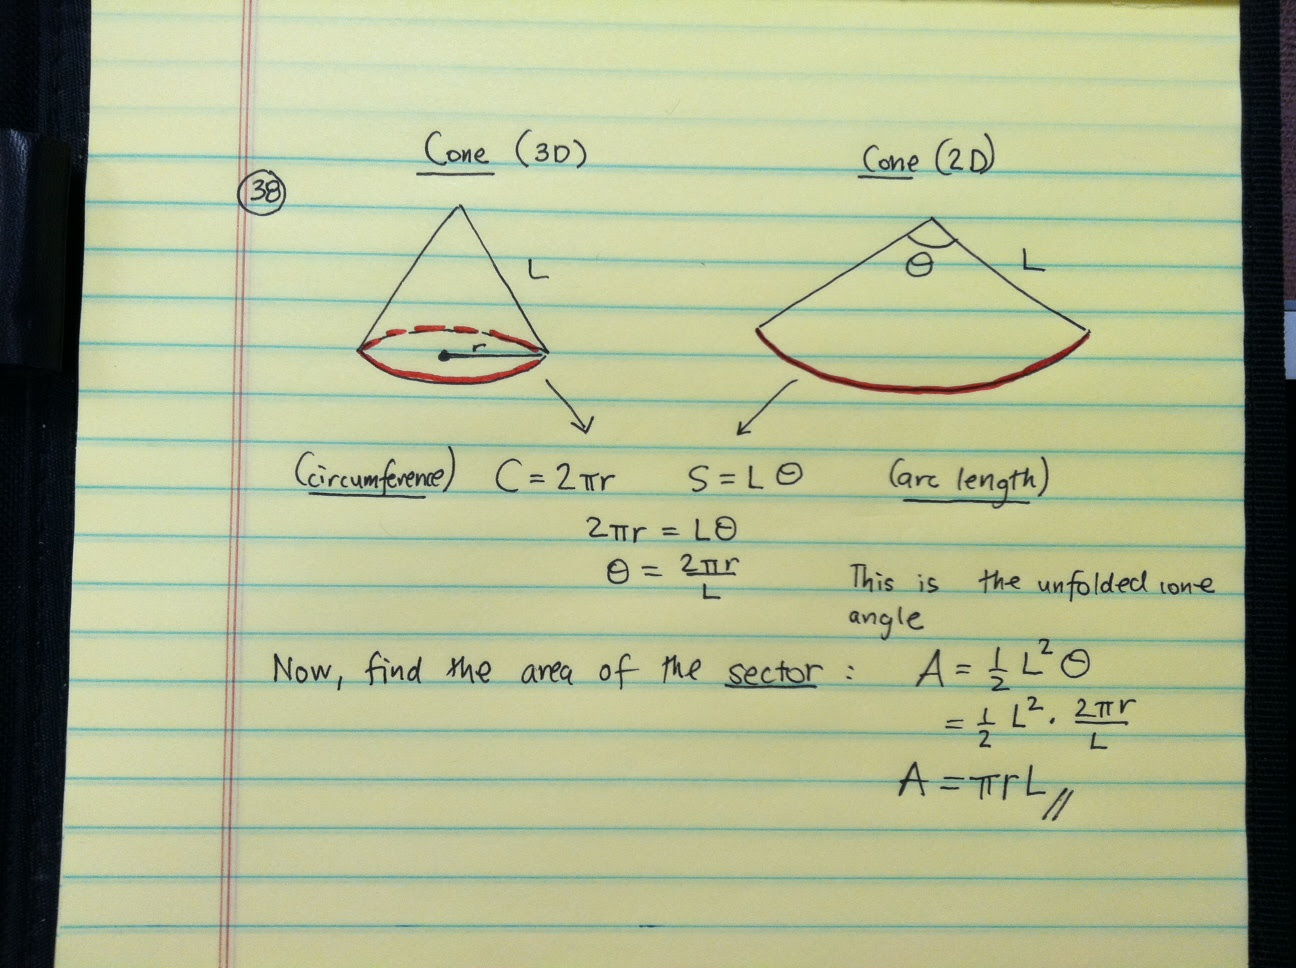 Cone (3D) Cone (2D)
38
L θ L
r
(circumference) C = 2πr S = Lθ (arc length)
2πr = Lθ
θ = 2πr/L
This is the unfolded cone
angle
Now, find the area of the sector : A = 1/2 L² θ
= 1/2 L² · 2πr/L
A = πrL //